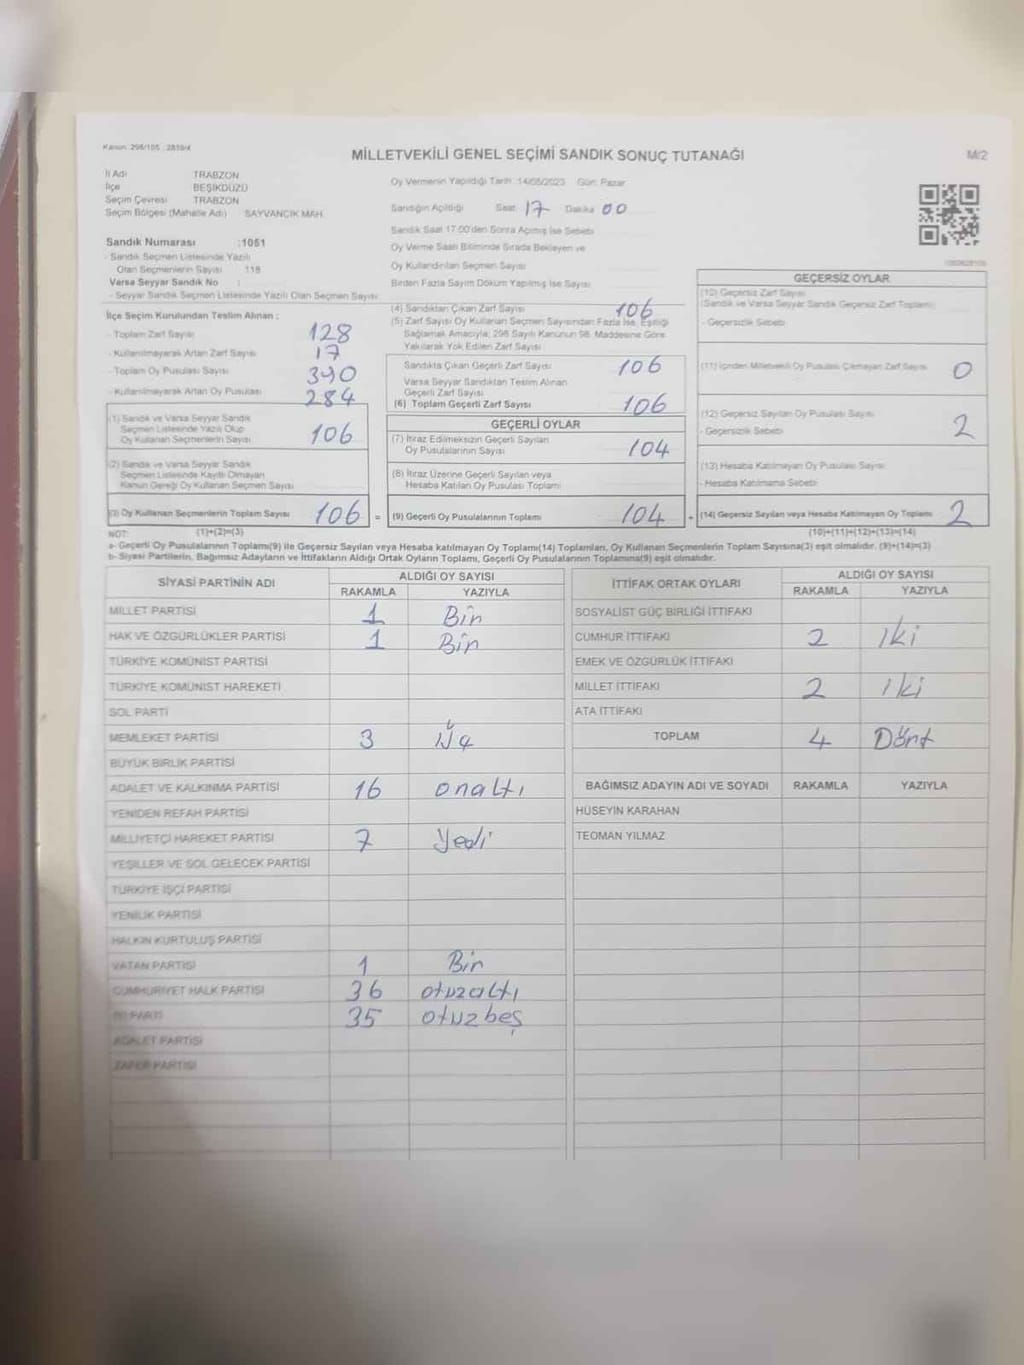 Kanun: 298/105 : 2839/4
MİLLETVEKİLİ GENEL SEÇİMİ SANDIK SONUÇ TUTANAĞI
M/2
İl Adı TRABZON
İlçe BEŞİKDÜZÜ
Seçim Çevresi TRABZON
Seçim Bölgesi (Mahalle Adı) SAYVANCIK MAH.
Sandık Numarası :1051
- Sandık Seçmen Listesinde Yazılı
Olan Seçmenlerin Sayısı 118
Varsa Seyyar Sandık No :
- Seyyar Sandık Seçmen Listesinde Yazılı Olan Seçmen Sayısı
Oy Vermenin Yapıldığı Tarih :14/05/2023 Gün: Pazar
Sandığın Açıldığı Saat 17 Dakika 00
Sandık Saat 17.00'den Sonra Açılmış İse Sebebi
Oy Verme Saati Bitiminde Sırada Bekleyen ve
Oy Kullandırılan Seçmen Sayısı
Birden Fazla Sayım Döküm Yapılmış İse Sayısı
İlçe Seçim Kurulundan Teslim Alınan :
- Toplam Zarf Sayısı 128
- Kullanılmayarak Artan Zarf Sayısı 17
- Toplam Oy Pusulası Sayısı 390
- Kullanılmayarak Artan Oy Pusulası 284
(1) Sandık ve Varsa Seyyar Sandık
Seçmen Listesinde Yazılı Olup
Oy Kullanan Seçmenlerin Sayısı 106
(2) Sandık ve Varsa Seyyar Sandık
Seçmen Listesinde Kayıtlı Olmayan
Kanun Gereği Oy Kullanan Seçmen Sayısı
(3) Oy Kullanan Seçmenlerin Toplam Sayısı 106 =
(4) Sandıktan Çıkan Zarf Sayısı 106
(5) Zarf Sayısı Oy Kullanan Seçmen Sayısından Fazla İse, Eşitliği
Sağlamak Amacıyla; 298 Sayılı Kanunun 98. Maddesine Göre
Yakılarak Yok Edilen Zarf Sayısı
Sandıkta Çıkan Geçerli Zarf Sayısı 106
Varsa Seyyar Sandıktan Teslim Alınan
Geçerli Zarf Sayısı
(6) Toplam Geçerli Zarf Sayısı 106
GEÇERLİ OYLAR
(7) İtiraz Edilmeksizin Geçerli Sayılan
Oy Pusulalarının Sayısı 104
(8) İtiraz Üzerine Geçerli Sayılan veya
Hesaba Katılan Oy Pusulası Toplamı
(9) Geçerli Oy Pusulalarının Toplamı 104 +
GEÇERSİZ OYLAR
(10) Geçersiz Zarf Sayısı
(Sandık ve Varsa Seyyar Sandık Geçersiz Zarf Toplamı)
- Geçersizlik Sebebi
(11) İçinden Milletvekili Oy Pusulası Çıkmayan Zarf Sayısı 0
(12) Geçersiz Sayılan Oy Pusulası Sayısı
- Geçersizlik Sebebi 2
(13) Hesaba Katılmayan Oy Pusulası Sayısı
- Hesaba Katılmama Sebebi
(14) Geçersiz Sayılan veya Hesaba Katılmayan Oy Toplamı 2
NOT: (1)+(2)=(3) (10)+(11)+(12)+(13)=(14)
a- Geçerli Oy Pusulalarının Toplamı(9) ile Geçersiz Sayılan veya Hesaba katılmayan Oy Toplamı(14) Toplamları, Oy Kullanan Seçmenlerin Toplam Sayısına(3) eşit olmalıdır. (9)+(14)=(3)
b- Siyasi Partilerin, Bağımsız Adayların ve İttifakların Aldığı Ortak Oyların Toplamı, Geçerli Oy Pusulalarının Toplamına(9) eşit olmalıdır.
SİYASİ PARTİNİN ADI ALDIĞI OY SAYISI
RAKAMLA YAZIYLA
MİLLET PARTİSİ 1 Bir
HAK VE ÖZGÜRLÜKLER PARTİSİ 1 Bir
TÜRKİYE KOMÜNİST PARTİSİ
TÜRKİYE KOMÜNİST HAREKETİ
SOL PARTİ
MEMLEKET PARTİSİ 3 Üç
BÜYÜK BİRLİK PARTİSİ
ADALET VE KALKINMA PARTİSİ 16 onaltı
YENİDEN REFAH PARTİSİ
MİLLİYETÇİ HAREKET PARTİSİ 7 Yedi
YEŞİLLER VE SOL GELECEK PARTİSİ
TÜRKİYE İŞÇİ PARTİSİ
YENİLİK PARTİSİ
HALKIN KURTULUŞ PARTİSİ
VATAN PARTİSİ 1 Bir
CUMHURİYET HALK PARTİSİ 36 otuzaltı
İYİ PARTİ 35 otuzbeş
ADALET PARTİSİ
ZAFER PARTİSİ
İTTİFAK ORTAK OYLARI ALDIĞI OY SAYISI
RAKAMLA YAZIYLA
SOSYALİST GÜÇ BİRLİĞİ İTTİFAKI
CUMHUR İTTİFAKI 2 iki
EMEK VE ÖZGÜRLÜK İTTİFAKI
MİLLET İTTİFAKI 2 iki
ATA İTTİFAKI
TOPLAM 4 Dört
BAĞIMSIZ ADAYIN ADI VE SOYADI RAKAMLA YAZIYLA
HÜSEYİN KARAHAN
TEOMAN YILMAZ